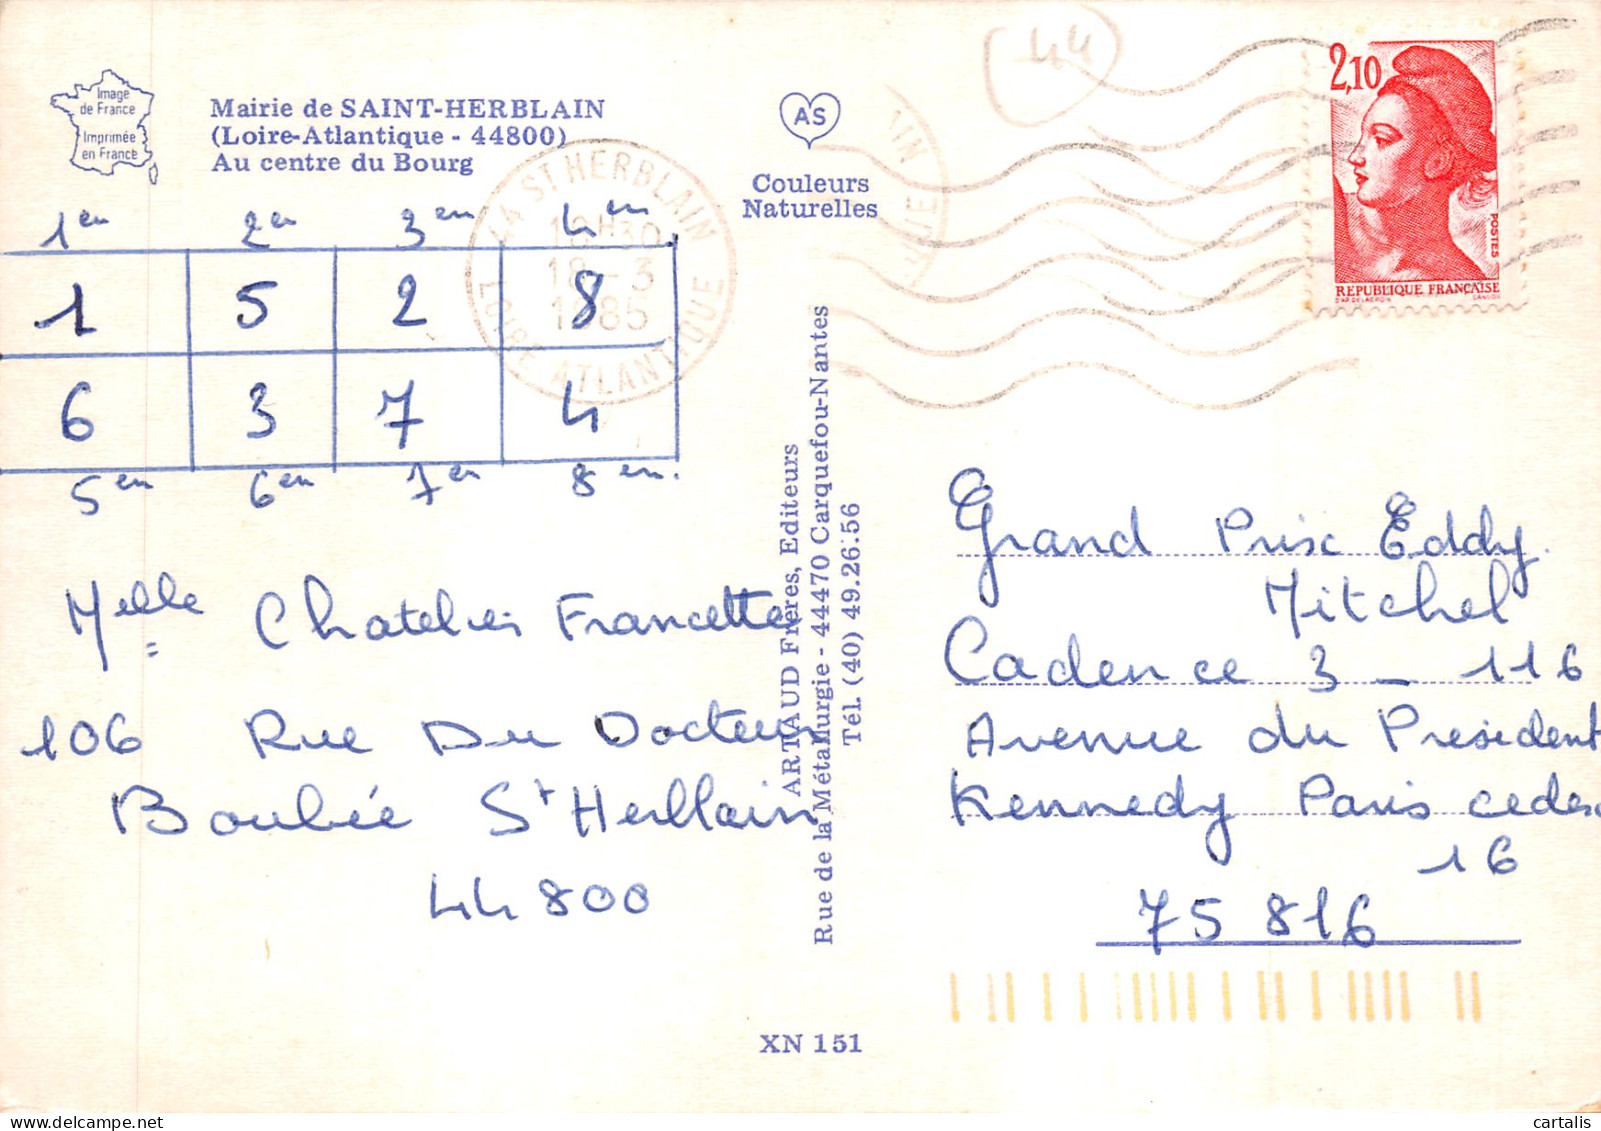 Image
de France
Imprimée
en France
Mairie de SAINT-HERBLAIN
(Loire-Atlantique - 44800)
Au centre du Bourg
AS
Couleurs
Naturelles
44
2,10
POSTES
REPUBLIQUE FRANÇAISE
D'AP. DELACROIX GANDON
44 ST HERBLAIN
18H30
18 - 3
1985
LOIRE ATLANTIQUE
1en 2en 3en 4en
1 5 2 8
6 3 7 4
5en 6en 7en 8en.
Melle Chatelier Francette
106 Rue Du Docteur
Boubée St Herblain
44 800
ARTAUD Frères, Editeurs
Rue de la Métallurgie - 44470 Carquefou-Nantes
Tél. (40) 49.26.56
Grand Prix Eddy
Mitchel
Cadence 3 _ 116
Avenue du President
Kennedy Paris cedex
16
75 816
XN 151
cartalis